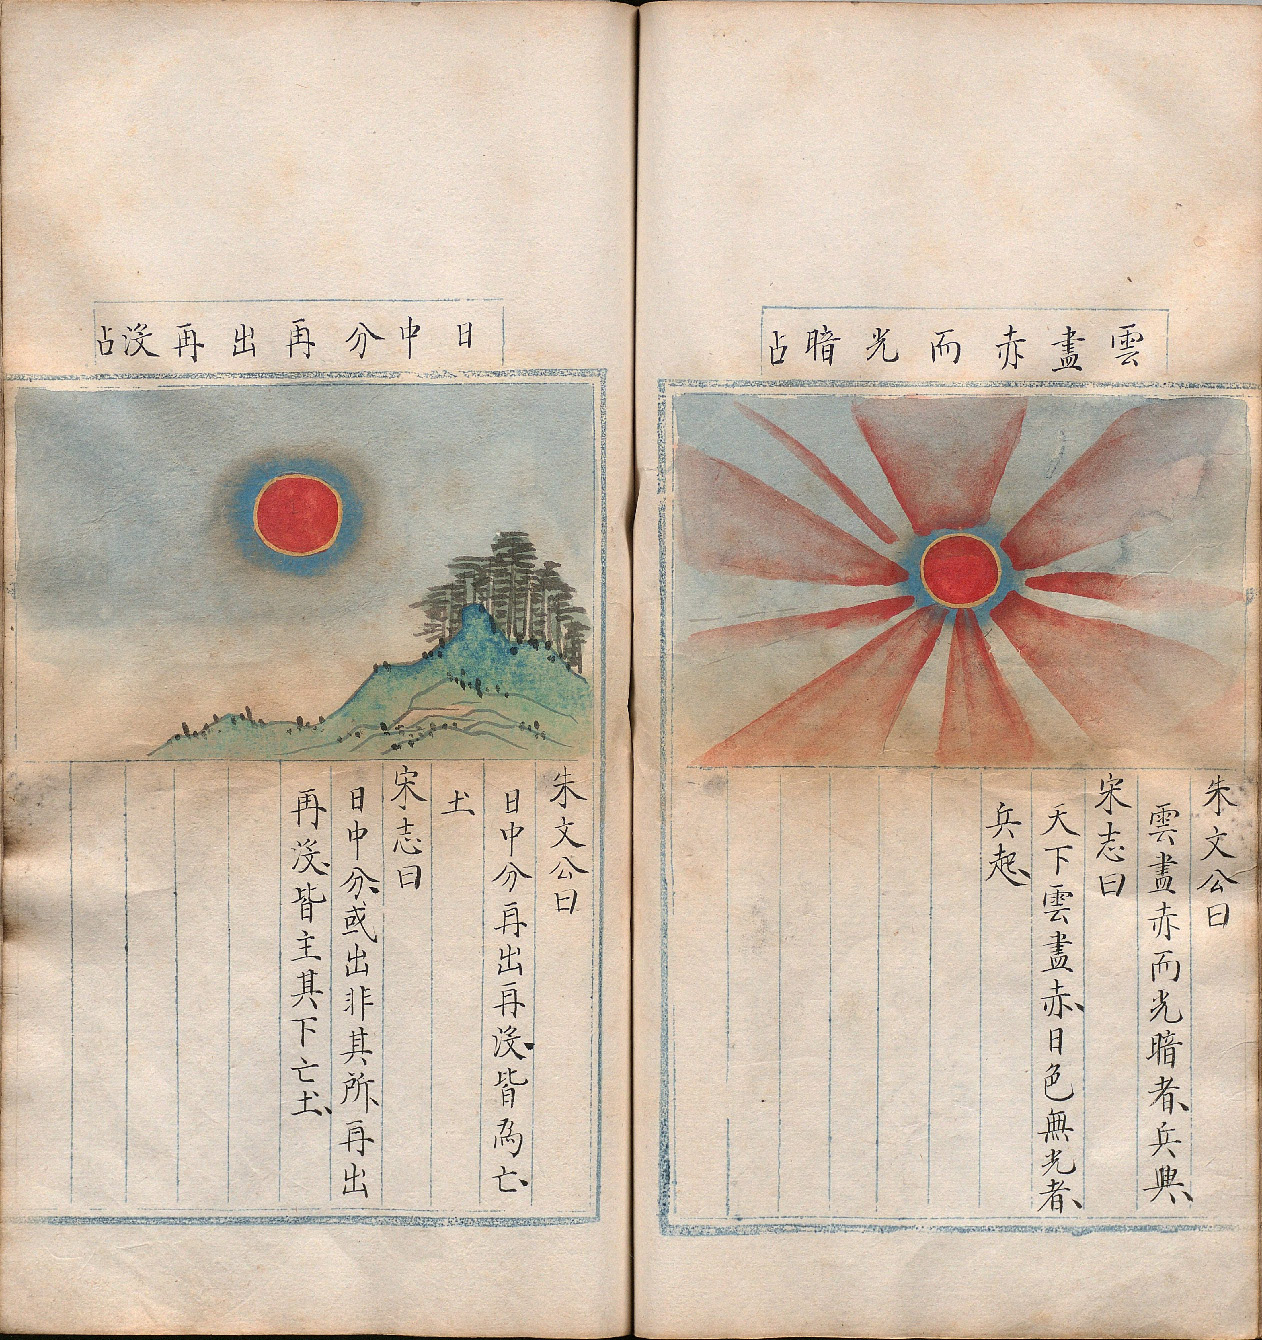 雲盡赤而光暗占
朱文公曰
雲盡赤而光暗者、兵興、
宋志曰
天下雲盡赤、日色無光者、
兵起、
日中分再出再沒占
朱文公曰
日中分再出再沒、皆為亡、
圡
宋志曰
日中分、或出非其所、再出
再沒、皆主其下亡圡、